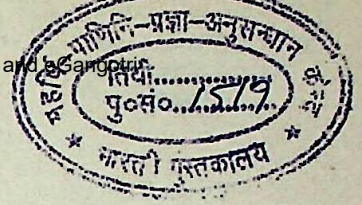 महर्षि पाणिनि-प्रज्ञा-अनुसन्धान केन्द्र
and eGangotri
तिथी..................
पु०सं०..1519..
* भारती पुस्तकालय *